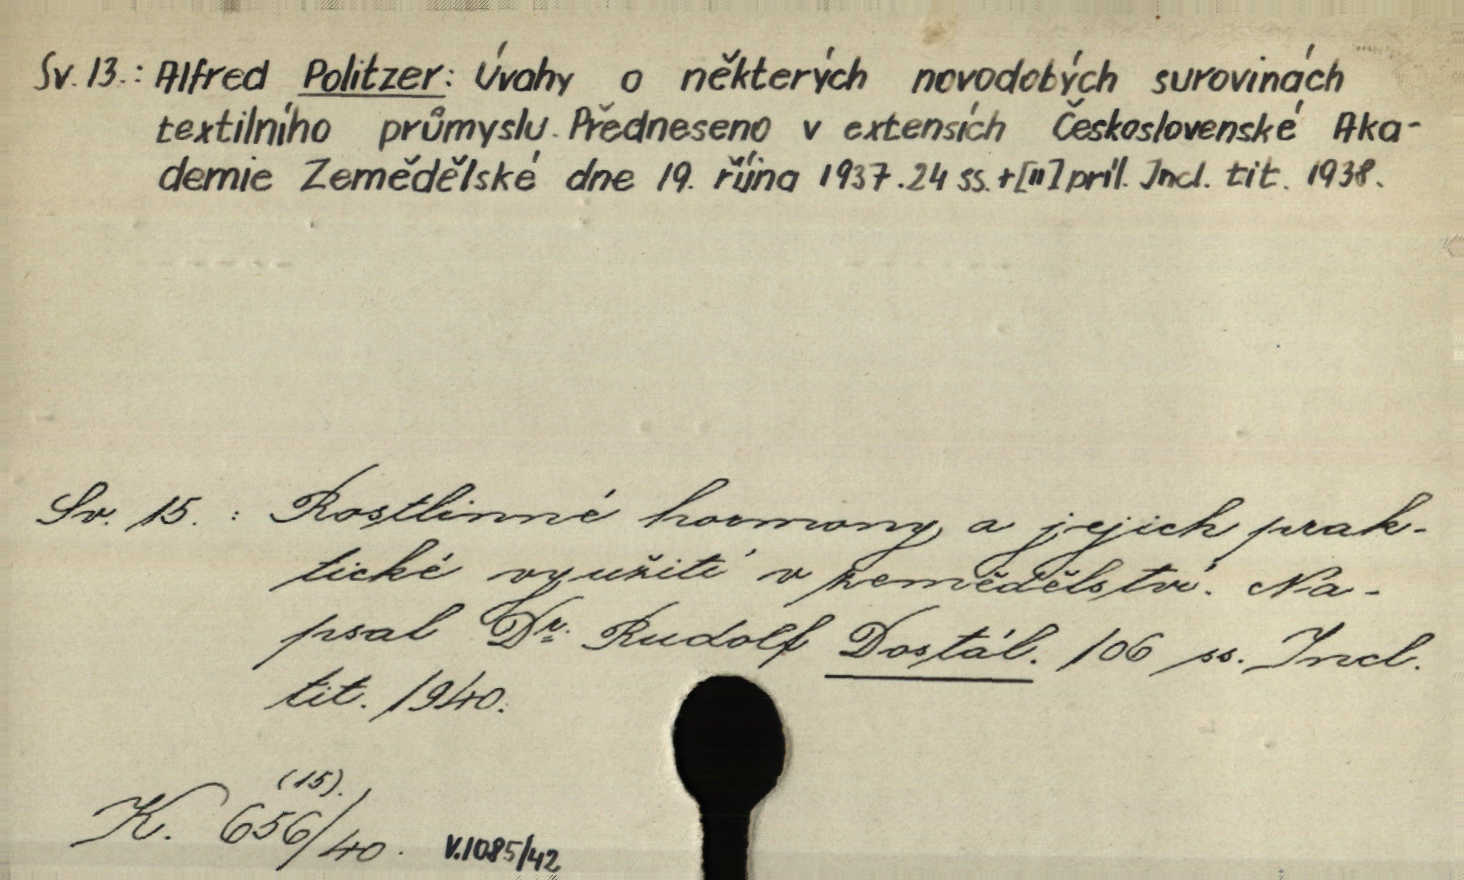 Sv. 13.: Alfred Politzer: Úvahy o některých novodobých surovinách
textilního průmyslu. Předneseno v extensích Československé Aka-
demie Zemědělské dne 19. října 1937. 24 ss. + [II] príl. Incl. tit. 1938.
Sv. 15. : Rostlinné hormony a jejich prak-
tické využití v zemědělství. Na-
psal Dr. Rudolf Dostál. 106 ss. Incl.
tit. 1940.
(15).
K. 656/40. V.1085/42